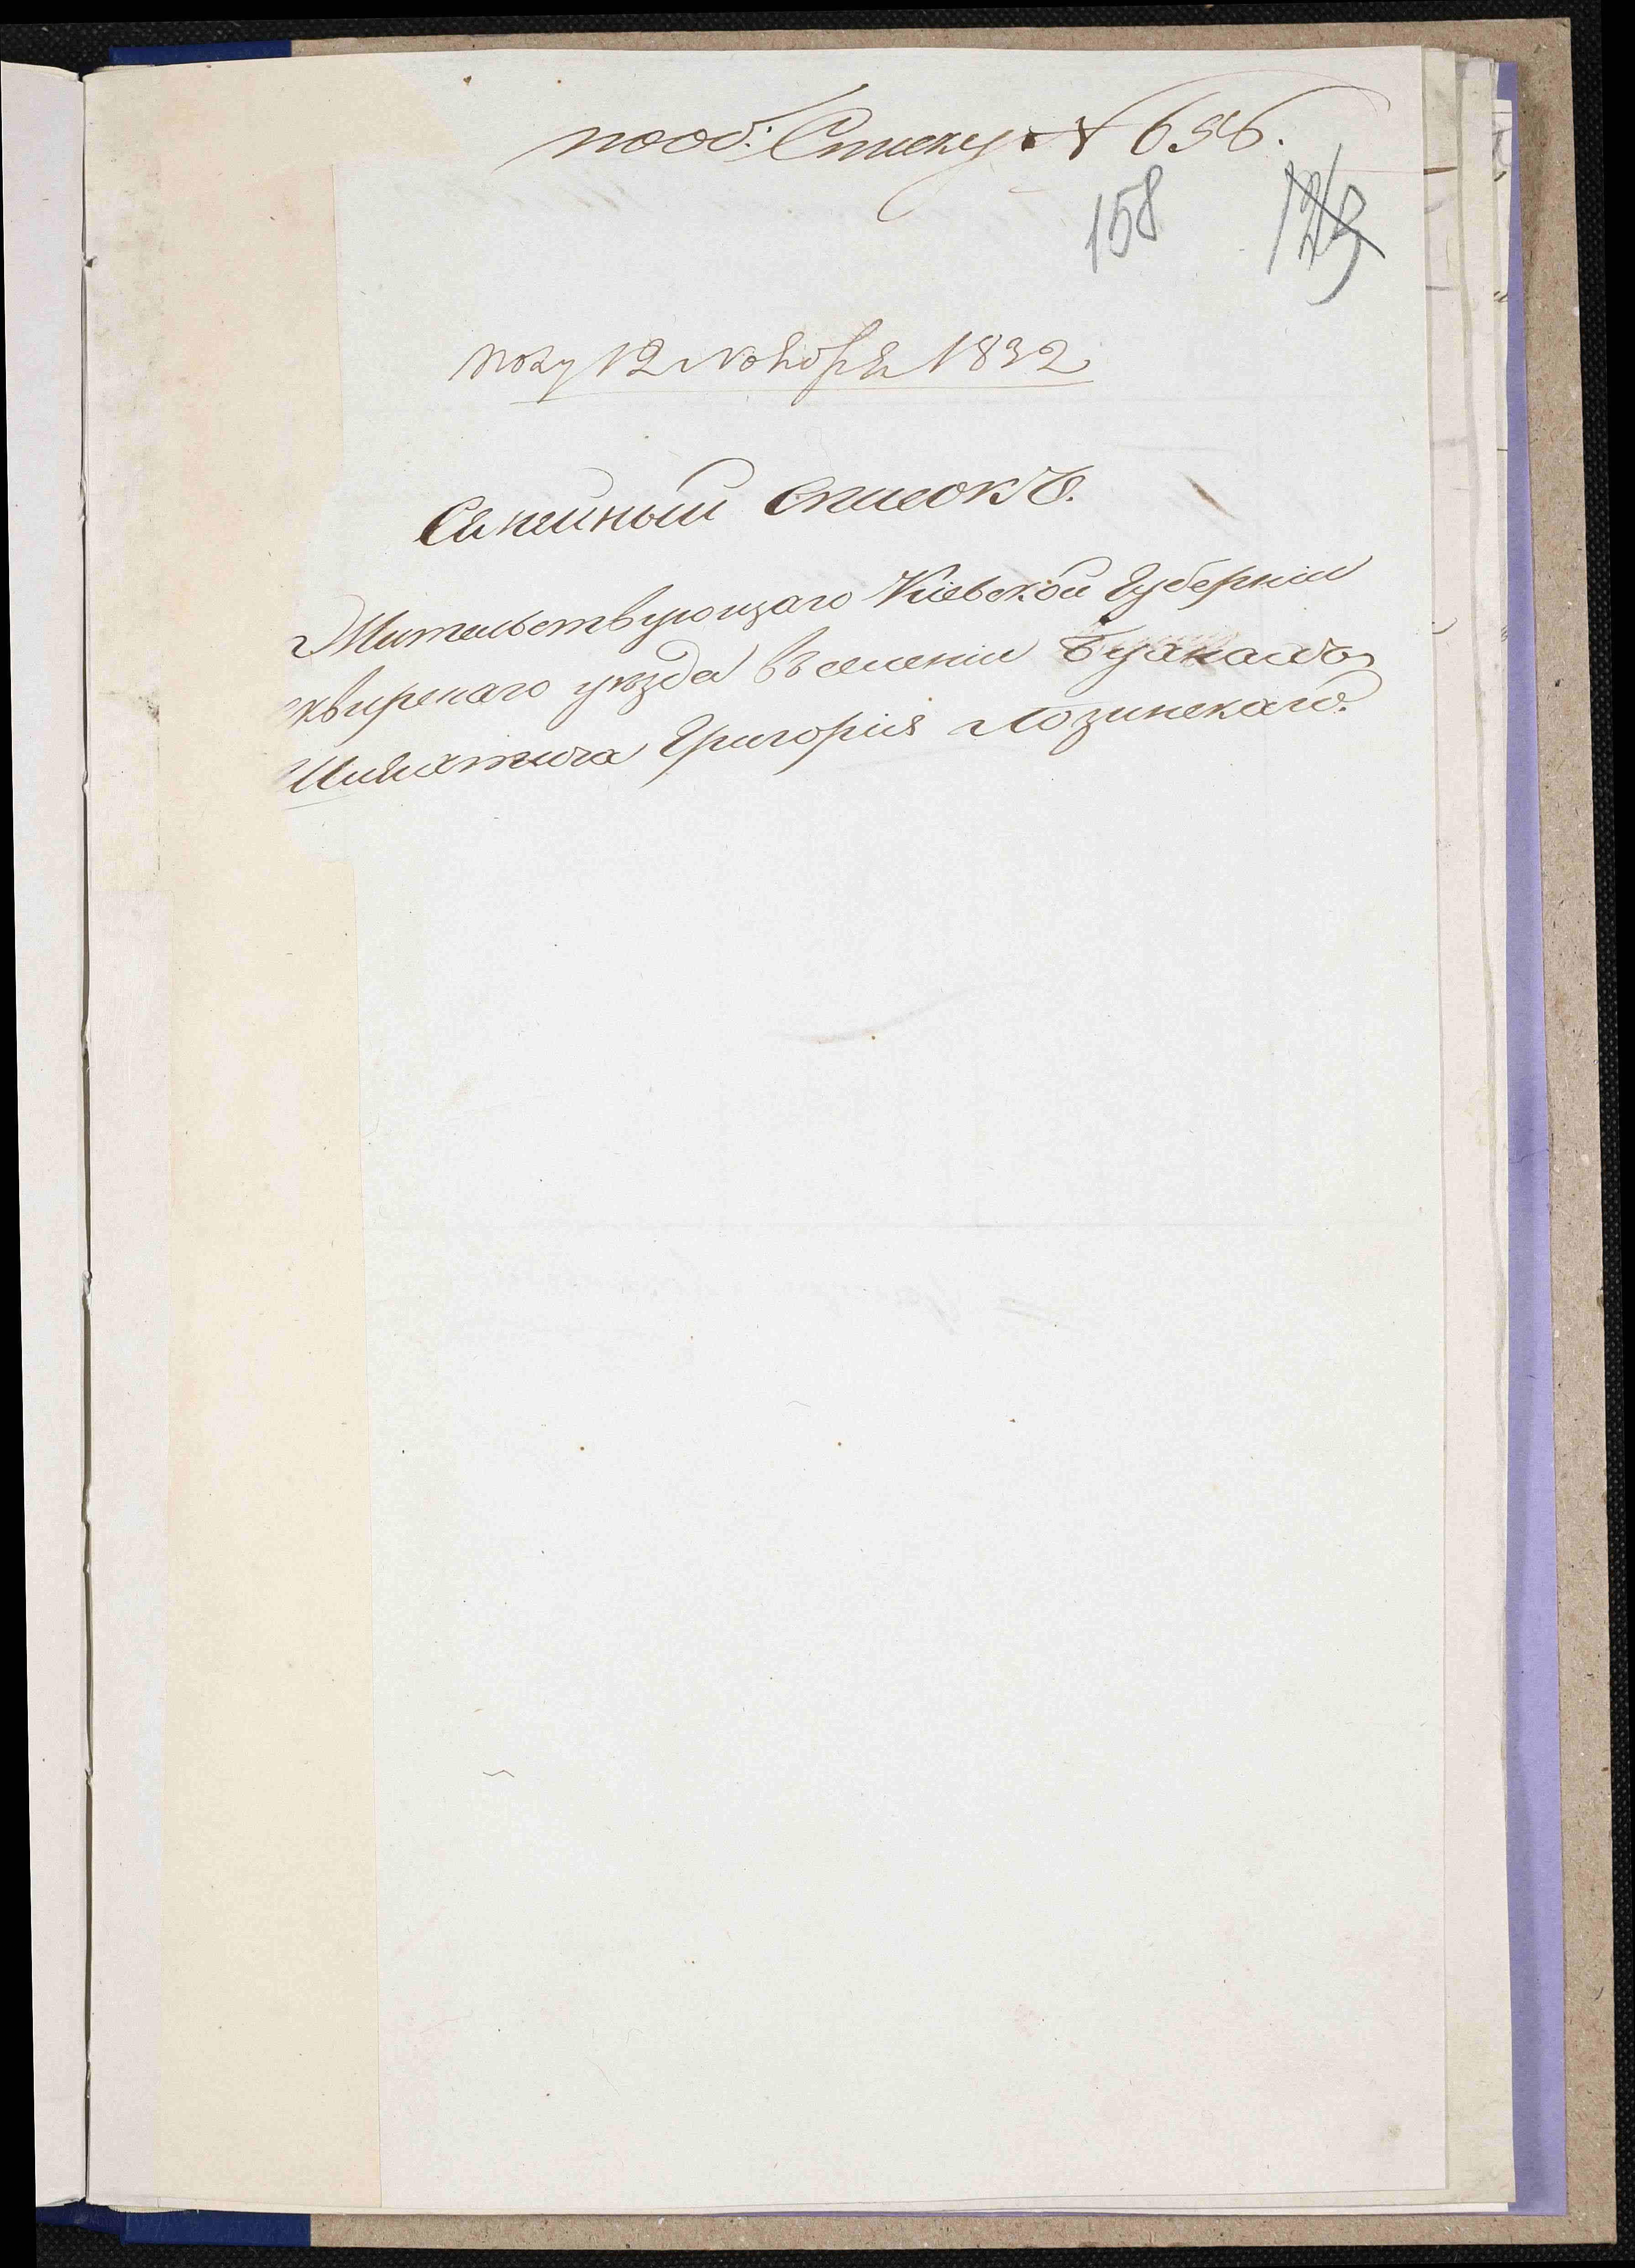 по об: Списку № 656.
158 123
полу 12 Ноября 1832
Семейный списокъ.
Жительствующаго Кіевской Губерніи
сквирскаго уѣзда въ селеніи
Шляхтича Григорія Лозинскаго.